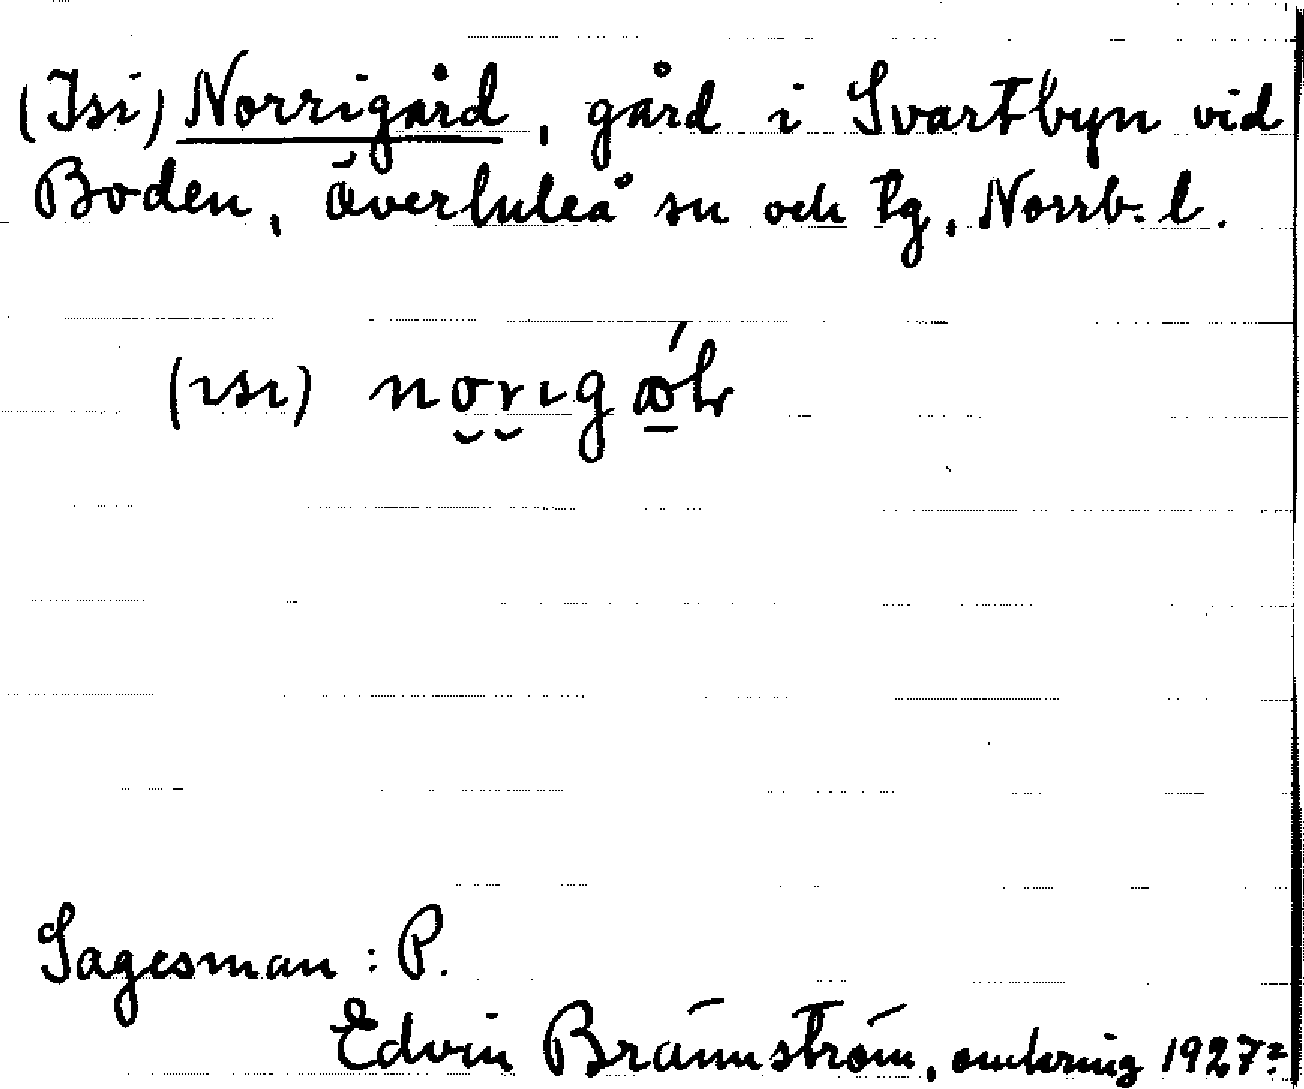 (Isi) Norrigård, gård i Svartbyn vid
Boden, Överluleå sn och tg, Norrb. l.
(ısı) norıgǻɷ́lr
Sagesman: P.
Edvin Brännström, omkring 1927?